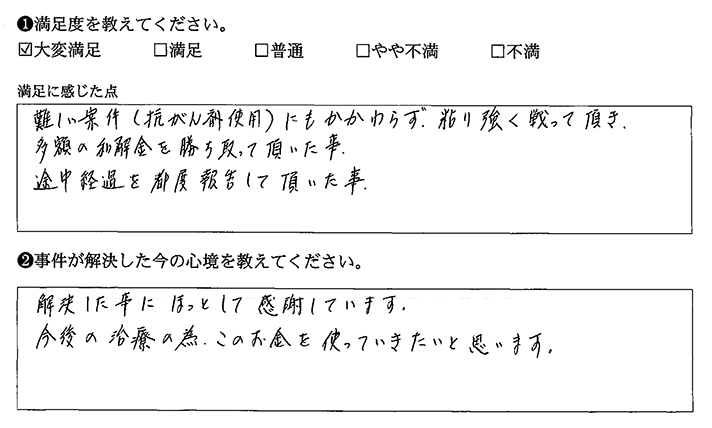 ❶満足度を教えてください。
☑大変満足 □満足 □普通 □やや不満 □不満
満足に感じた点
難しい案件（抗がん剤使用）にもかかわらず、粘り強く戦って頂き、
多額の和解金を勝ち取って頂いた事、
途中経過を都度報告して頂いた事、
❷事件が解決した今の心境を教えてください。
解決した事にほっとして感謝しています。
今後の治療の為、このお金を使っていきたいと思います。